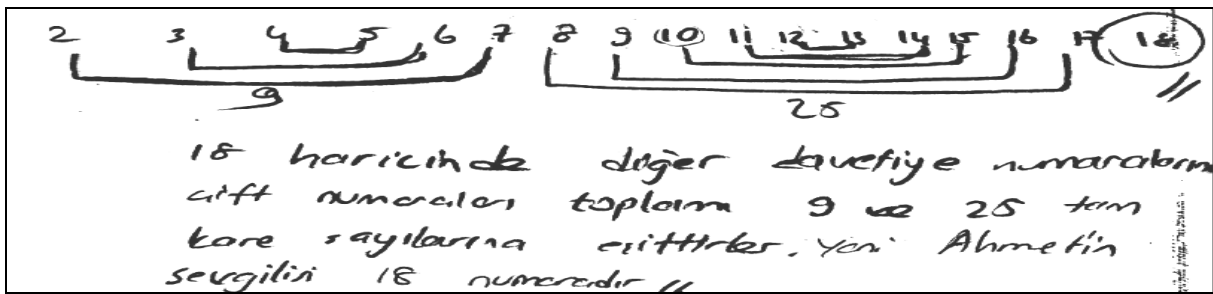 2 3 4 5 6 7 8 9 10 11 12 13 14 15 16 17 18
9 25
18 haricinde diğer davetiye numaralarını
çift numaraları toplamı 9 ve 25 tam
kare sayılarına eşittirler. Yani Ahmet'in
sevgilisi 18 numaradır //